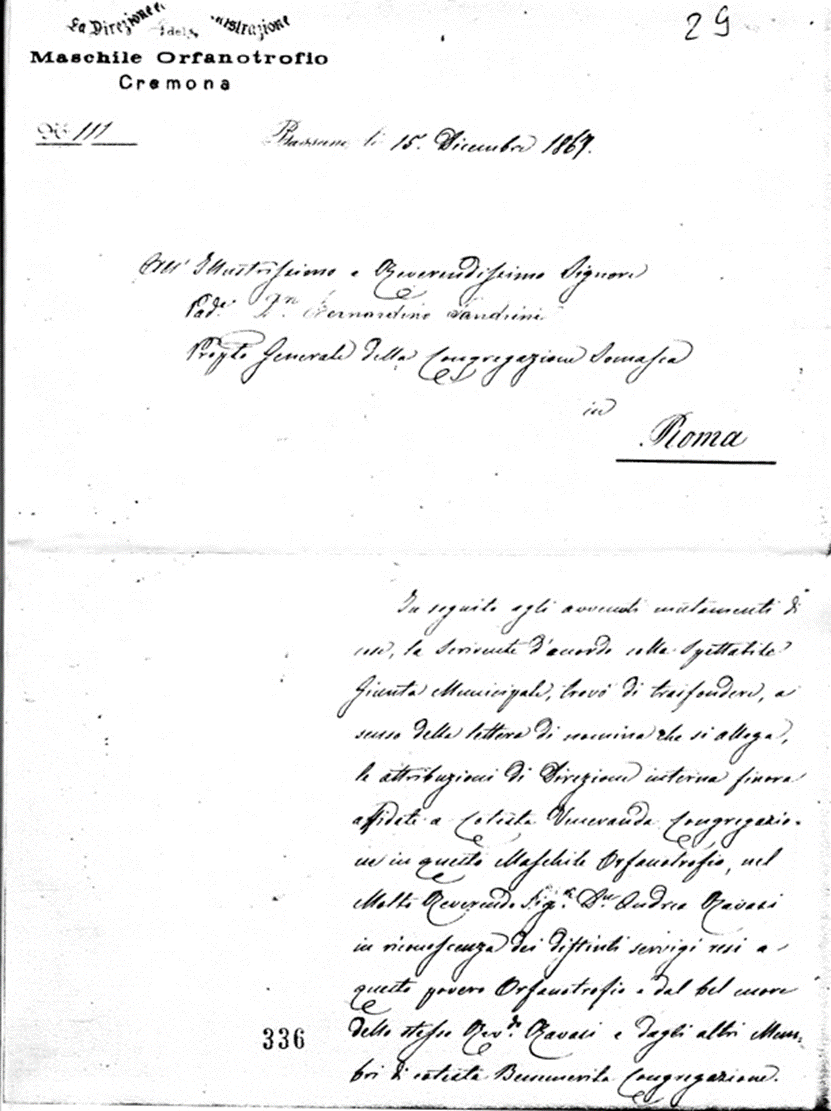 La Direzione e
nistrazione
del
Maschile Orfanotrofio
Cremona
29
N.º 111
li 15. Dicembre 1867.
All' Illustrissimo e Reverendissimo Signore
Pad.e D.n Bernardino Sandrini
Prep.to Generale della Congregazione Somasca
in
Roma
In seguito agli avvenuti mutamenti di
cose, la Scrivente d'accordo colla Spettabile
Giunta Municipale, trovò di trasfondere, a
senso della lettera di nomina che si allega,
le attribuzioni di Direzione interna finora
affidate a Cotesta Veneranda Congregazio-
ne in questo Maschile Orfanotrofio, nel
Molto Reverendo Sig.r D.n Andrea Ravasi
in riconoscenza dei distinti servigi resi a
questo povero Orfanotrofio e dal bel cuore
dello stesso Rev.do Ravasi e dagli altri Mem-
bri di cotesta Benemerita Congregazione.
336